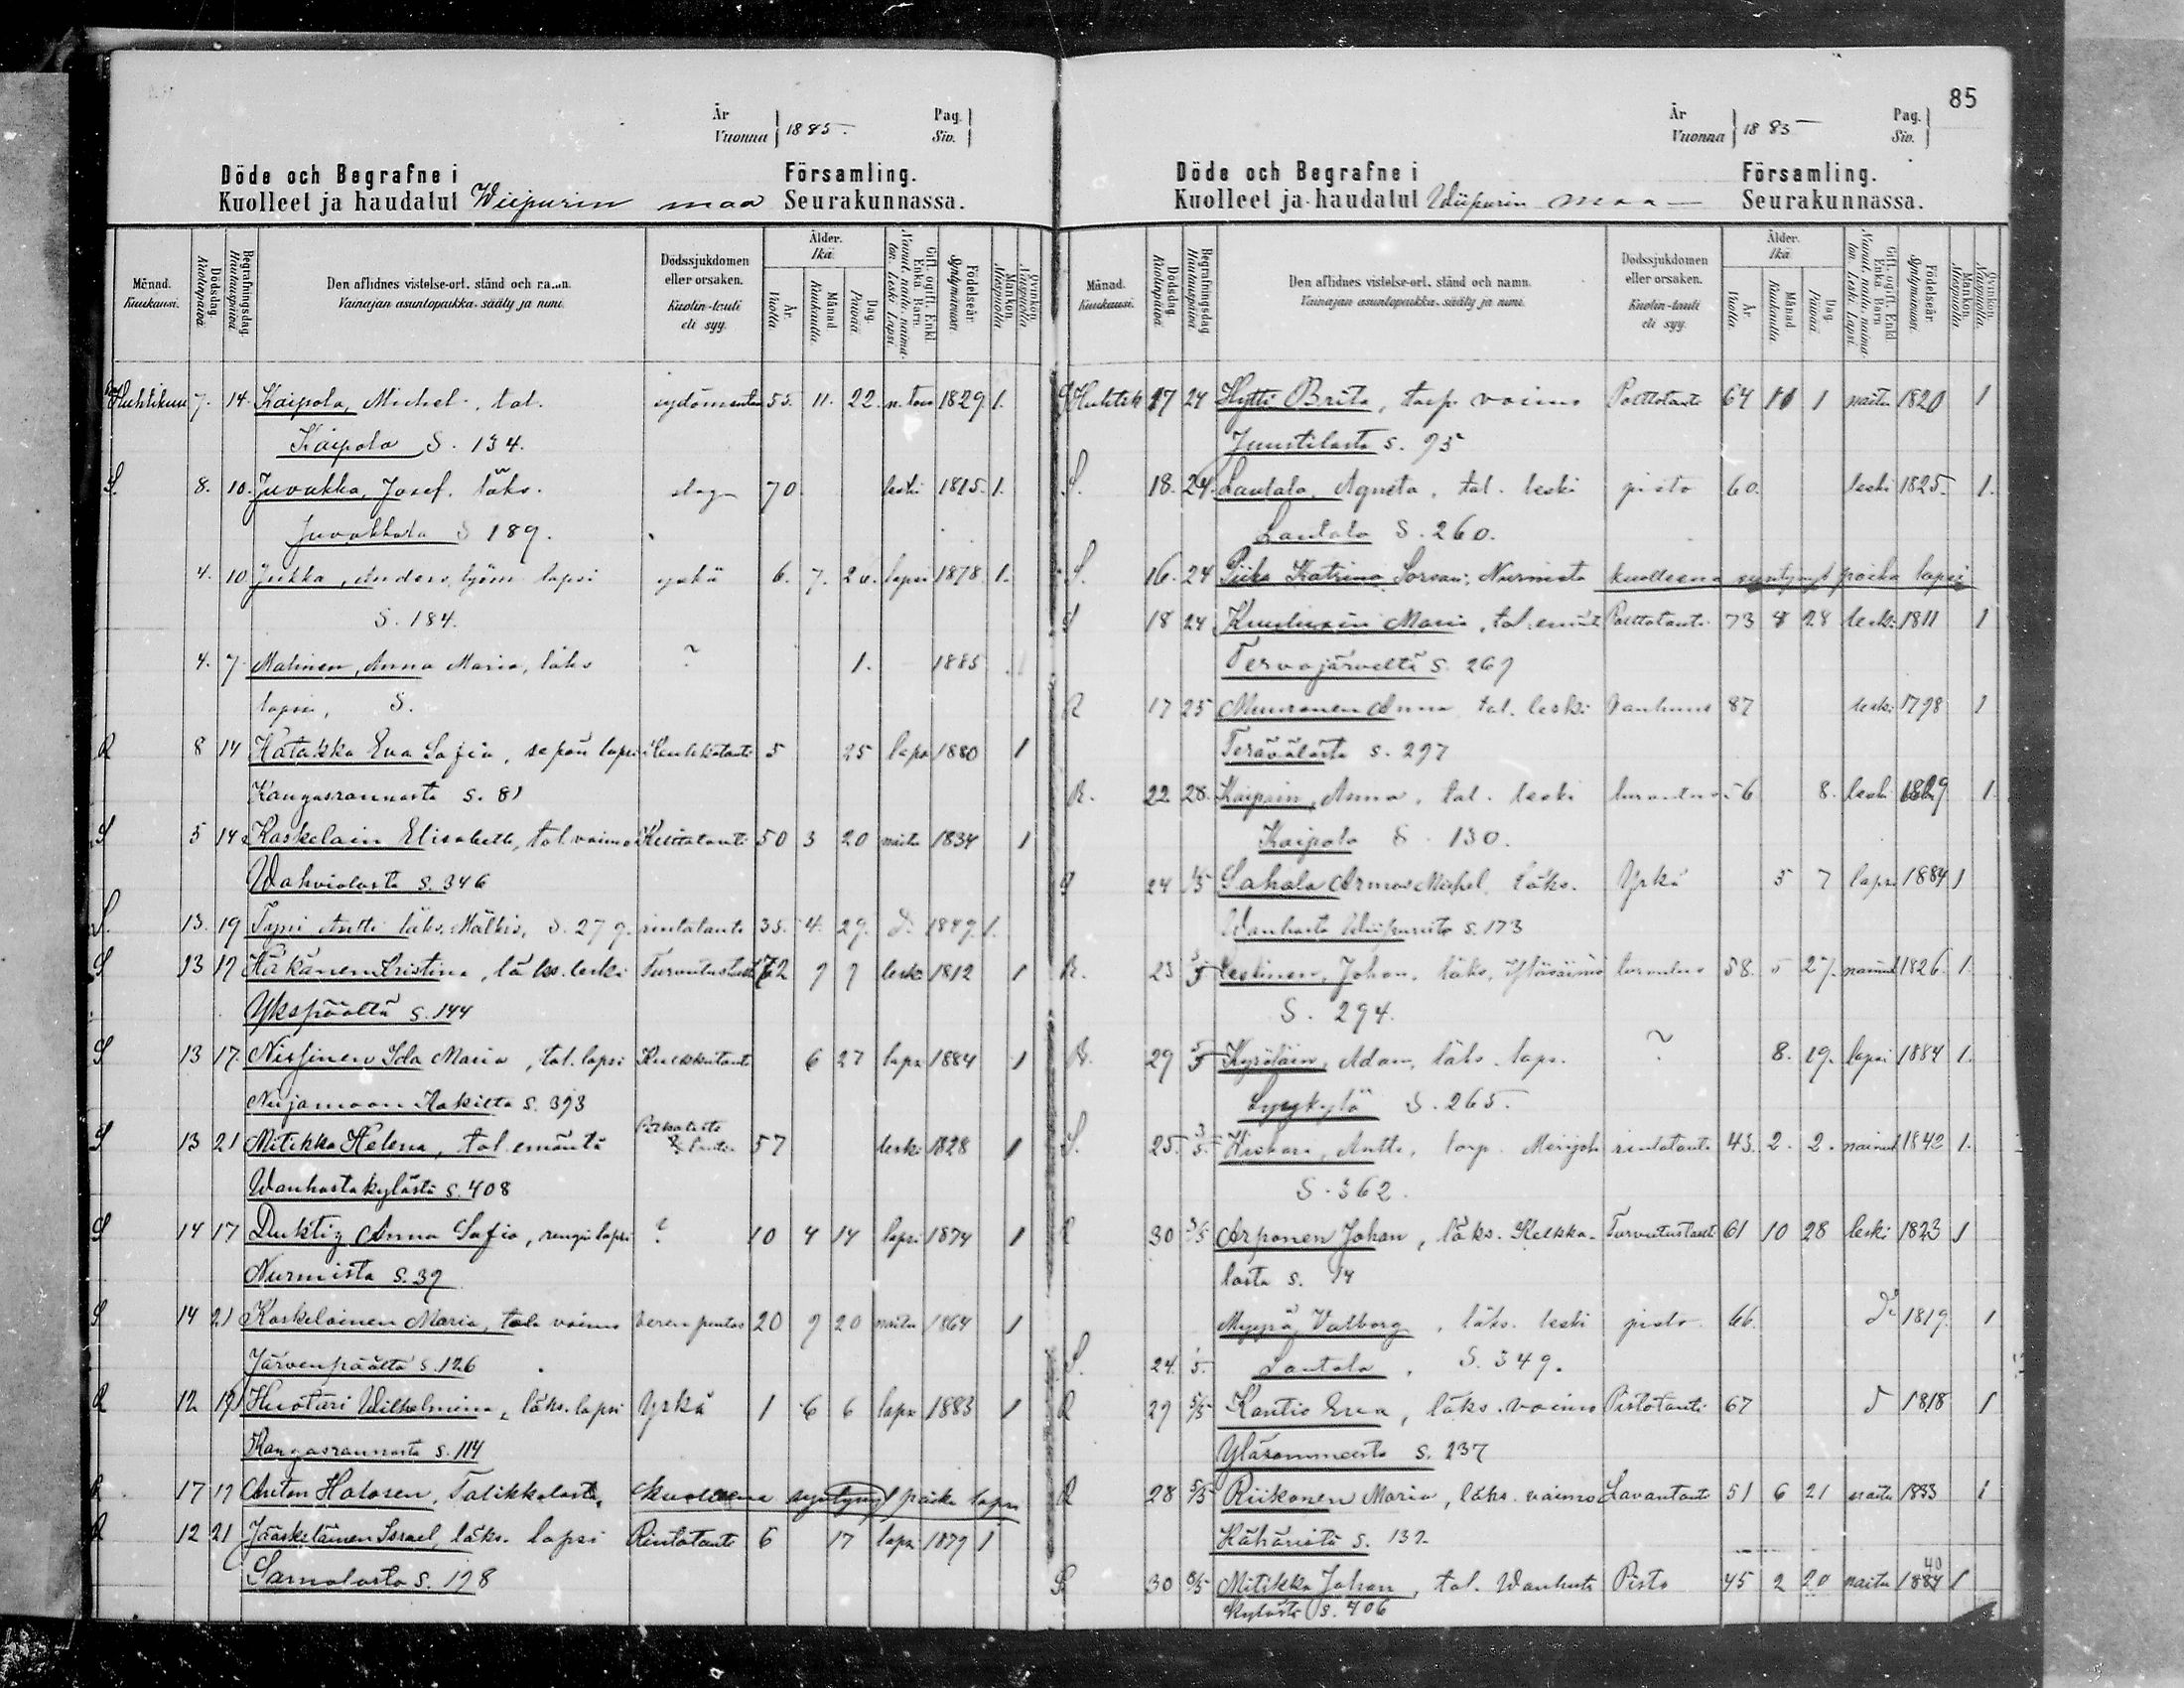 År
Vuonna 1885.
Pag.
Siv.
Döde och Begrafne i Församling.
Kuolleet ja haudatut Wiipurin maa Seurakunnassa.
Månad.
Kuukausi.
Dödsdag.
Kuolinpäivä.
Begrafningsdag.
Hautauspäivä.
Den aflidnes vistelse-ort, stånd och namn.
Vainajan asuntopaikka, sääty ja nimi.
Dödssjukdomen
eller orsaken.
Kuolin-tauti
eli syy.
Ålder.
Ikä.
År.
Vuotta.
Månad.
Kuukautta.
Dag.
Päivää.
Gift, ogift, Enkl.
Enka, Barn.
Födelseår.
Syntymävuosi.
Mankön.
Miespuolia.
Qvinkön.
Vaimopuolia.
Huhtikuu 7. 14. Kaipola, Michel, tal. 55. 11. 22. 1829 1.
Kaipola S. 134.
S. 8. 10. Juvakka, Josef. läks. slag 70 leski 1815. 1.
Juvakkala S 189.
4. 10 Jukka, Anders, työm lapsi yskä 6. 7. lapsi 1878. 1.
S. 184.
4. 7. Matinen, Anna Maria, läks ? 1. 1885
lapsi, S.
R 8 14 Katakka Eva Sofia, sepän lapsi 5 25 laps 1880 1
Kangasrannasta s. 81
S 5 14 Koskelain Elisabeth, tal. vaimo 50 3 20 naitu 1834 1
Wahvialasta s. 346
S. 13. 19 Typpi Antti läks. Mälkis, S. 279. rintatauti 35. 4. 29. d:o 1849. 1.
S 13 19 Häkänen Kristina, läks. leski Turvutustauti 72 9 9 leski 1812 1
Ykspäältä s. 144
S 13 17 Nissinen Ida Maria, tal. lapsi Kurkkutauti 6 27 laps 1884 1
Nuijamaan Kakilta s. 393
S 13 21 Mitikka Helena, tal. emäntä 57 leski 1828 1
Wanhastakylästä s. 408
S 14 17 Duktig Anna Sofia, rengin lapsi ? 10 4 14 lapsi 1874 1
Nurmista s. 39
S 14 21 Koskelainen Maria, tal. vaimo veren puutos 20 9 20 naitu 1864 1
Järvenpäältä s. 126
R 12 19 Huotari Wilhelmina, läks. lapsi Yskä 1 6 6 laps 1883 1
Kangasrannasta s. 114
R 17 19 Anton Halosen, Talikkalasta, kuolleena syntynyt poika lapsi
R 12 21 Jääskeläinen Israel, läks. lapsi Rintatauti 6 17 laps 1879 1
Samolasta s. 198
85
År
Vuonna 1885
Pag.
Siv.
Döde och Begrafne i Församling.
Kuolleet ja haudatut Wiipurin maa Seurakunnassa.
Månad.
Kuukausi.
Dödsdag.
Kuolinpäivä.
Begrafningsdag.
Hautauspäivä.
Den aflidnes vistelse-ort, stånd och namn.
Vainajan asuntopaikka, sääty ja nimi.
Dödssjukdomen
eller orsaken.
Kuolin-tauti
eli syy.
Ålder.
Ikä.
År.
Vuotta.
Månad.
Kuukautta.
Dag.
Päivää.
Gift, ogift, Enkl.
Enka, Barn.
Födelseår.
Syntymävuosi.
Mankön.
Miespuolia.
Qvinkön.
Vaimopuolia.
S Huhtik 17 24 Hytti Brita, torp. vaimo Polttotauti 64 1 naitu 1820 1
Juustilasta s. 95
S. 18. 24. Lautala, Agneta, tal. leski pisto 60. leski 1825. 1.
Lautala S. 260.
S. 16. 24 Piika Katrina Sorvari, Nurmista kuolleena syntynyt poika lapsi
S 18 24 Maria, tal. emänt Polttotauti 73 8 28 leski 1811 1
Tervajärveltä s. 269
R 17 25 Muuronen Anna tal. leski Vanhuus 87 leski 1798 1
Terävälästä s. 297
R. 22 28. Kaipain, Anna, tal. leski turvutus 56 8. leski 1829 1.
Kaipola S. 130.
S 24 1/5 Sahala Armas Michel läks. Yskä 5 7 lapsi 1884 1
Wanhasta Wiipurista s. 173
R. 23 Leskinen, Johan, läks. turvutus 58. 5 27. nainut 1826. 1.
S. 294.
R. 29 Kyröläin, Adam, läks. laps. ? 8. 19. lapsi 1884 1.
Lyykylä S. 265.
S. 25. 3/5. Kiskari, Antti, torp. rintatauti 43. 2. 2. nainut 1842 1.
S. 362.
R 30 3/5 Arponen Johan, läks. Kelkka- Turvutustauti 61 10 28 leski 1823 1
lasta s. 14
Myyrä, Valborg, läks. leski pisto 66. d:o 1819. 1
S. 24. 1/5. Lautala, S. 349.
R 29 5/5 Kontio Eva, läks. vaimo Pistotauti 67 d 1818 1
Yläsommeesta s. 237
R 28 5/5 Riikonen Maria, läks. vaimo Lavantauti 51 6 21 naitu 1833 1
Kähäristä s. 132
S 30 8/5 Mitikka Johan, tal. Wanhasta Pisto 45 2 20 naitu 1840 1
kylästä s. 406